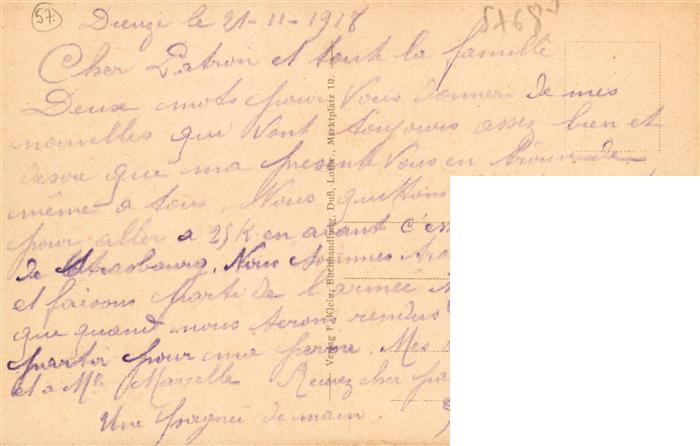 57.
Dieuze le 21-11-1918
Cher Patron et toute la famille
Deux mots pour vous donner de mes
nouvelles qui vont toujours assez bien et
désire que ma présente vous en trouve de
même à tous, Nous quittons
pour aller a 25 K en avant c'es
de Strasbourg. Nous sommes
et faisons parti de l'armée
que quand nous serons rendus
partir pour ma perme. Mes
et a Mlle Marcelle Recevez cher pa
Une poignée de main.
Verlag F. Klein, Buchhandlung, Duß, Lothr., Marktplatz 10.